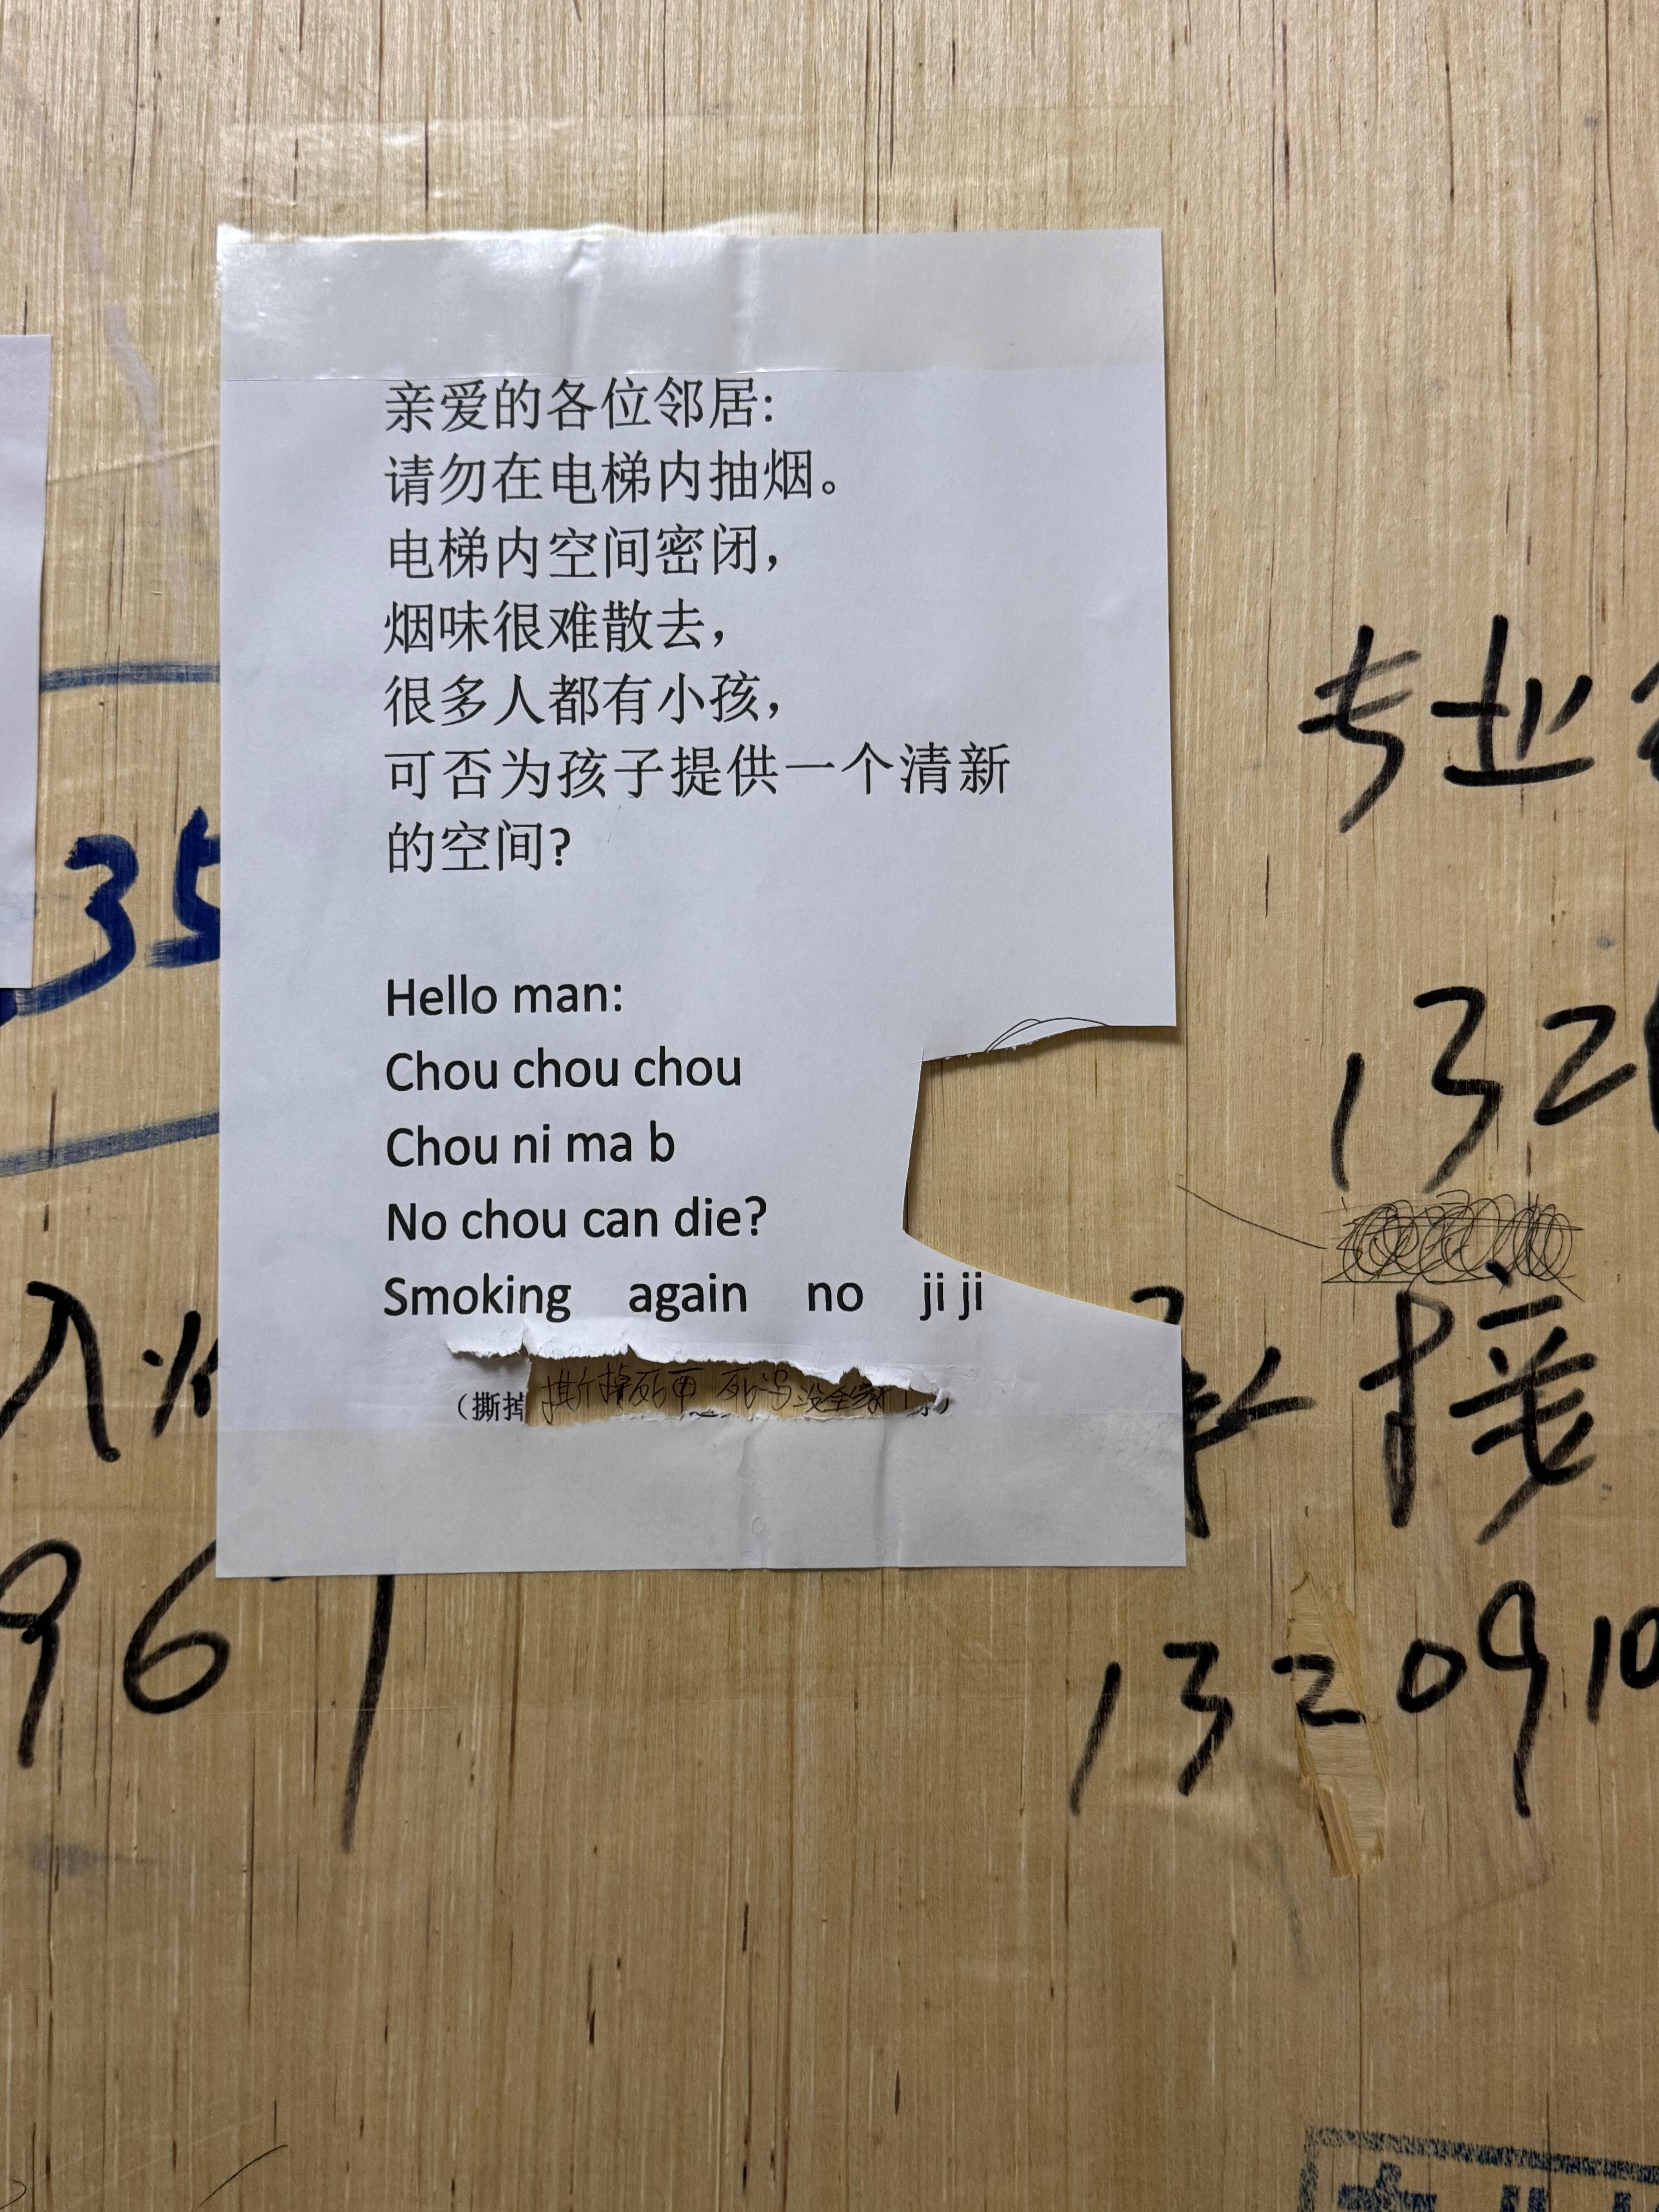 亲爱的各位邻居:
请勿在电梯内抽烟。
电梯内空间密闭，
烟味很难散去，
很多人都有小孩，
可否为孩子提供一个清新
的空间?
Hello man:
Chou chou chou
Chou ni ma b
No chou can die?
Smoking again no ji ji
（撕掉
撕掉死甲 死妈 没全家
35
967
专业
132
接
1320910